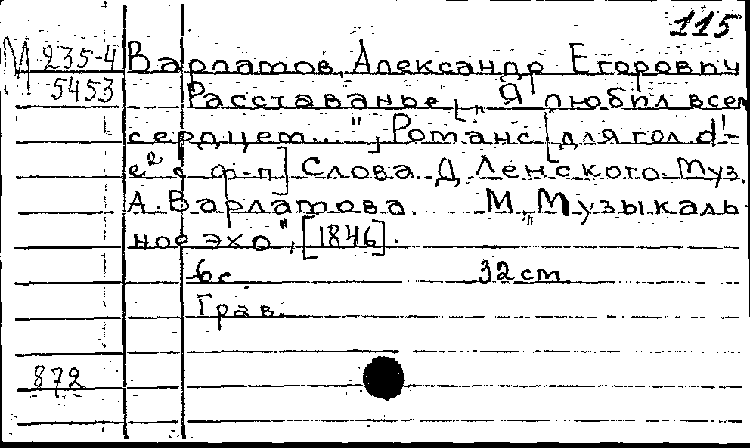 115
М 235-4
5453
Варламов, Александр Егорович
Расставанье. [„Я любил всем
сердцем..."], Романс [для гол. d¹-
e² с ф-п] Слова Д. Ленского. Муз.
А. Варламова. М., „Музыкаль-
ное эхо", [1846].
6 с. 32 cm.
Грав.
872